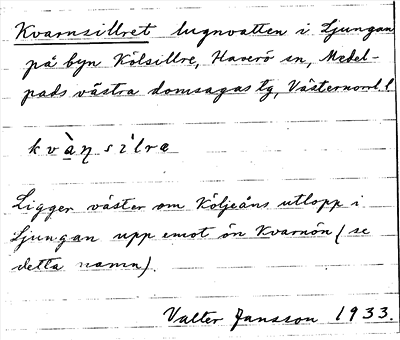 Kvarnsillret lugnvatten i Ljungan
på byn Kölsillre, Haverö sn, Medel-
pads västra domsagas tg, Västernorrl. l
kvàṇsìlræ
Ligger väster om Köljeåns utlopp i
Ljungan upp emot ön Kvarnön (se
detta namn).
Valter Jansson 1933.